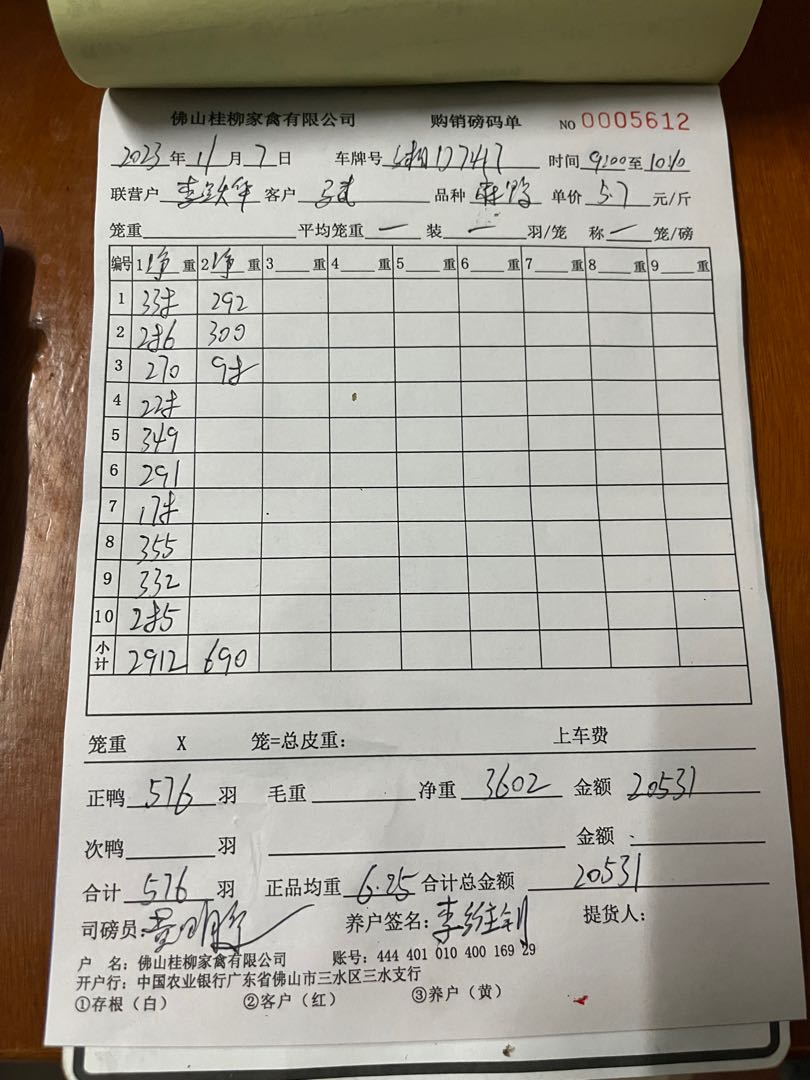 佛山桂柳家禽有限公司 购销磅码单 NO 0005612
2023 年 11 月 7 日 车牌号 时间 9:00 至 10:10
联营户 李 华 客户 品种 麻鸭 单价 5.7 元/斤
笼重 平均笼重 一 装 一 羽/笼 称 一 笼/磅
编号 1 净 重 2 净 重 3 重 4 重 5 重 6 重 7 重 8 重 9 重
1 338 292
2 286 300
3 270 98
4 228
5 349
6 291
7 178
8 355
9 332
10 285
小计 2912 690
笼重 X 笼=总皮重: 上车费
正鸭 576 羽 毛重 净重 3602 金额 20531
次鸭 羽 金额
合计 576 羽 正品均重 6.25 合计总金额 20531
司磅员: 黄明 养户签名: 李 提货人:
户 名: 佛山桂柳家禽有限公司 账号: 444 401 010 400 169 29
开户行: 中国农业银行广东省佛山市三水区三水支行
①存根（白） ②客户（红） ③养户（黄）